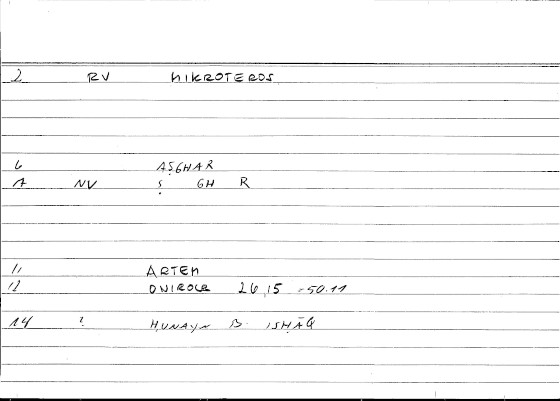 2 RV MIKROTEROS
6 AṢGHAR
7 NV Ṣ GH R
11 ARTEM
12 ONIROCR 26,15 -50.11
14 ? ḤUNAYN B. ISḤĀQ